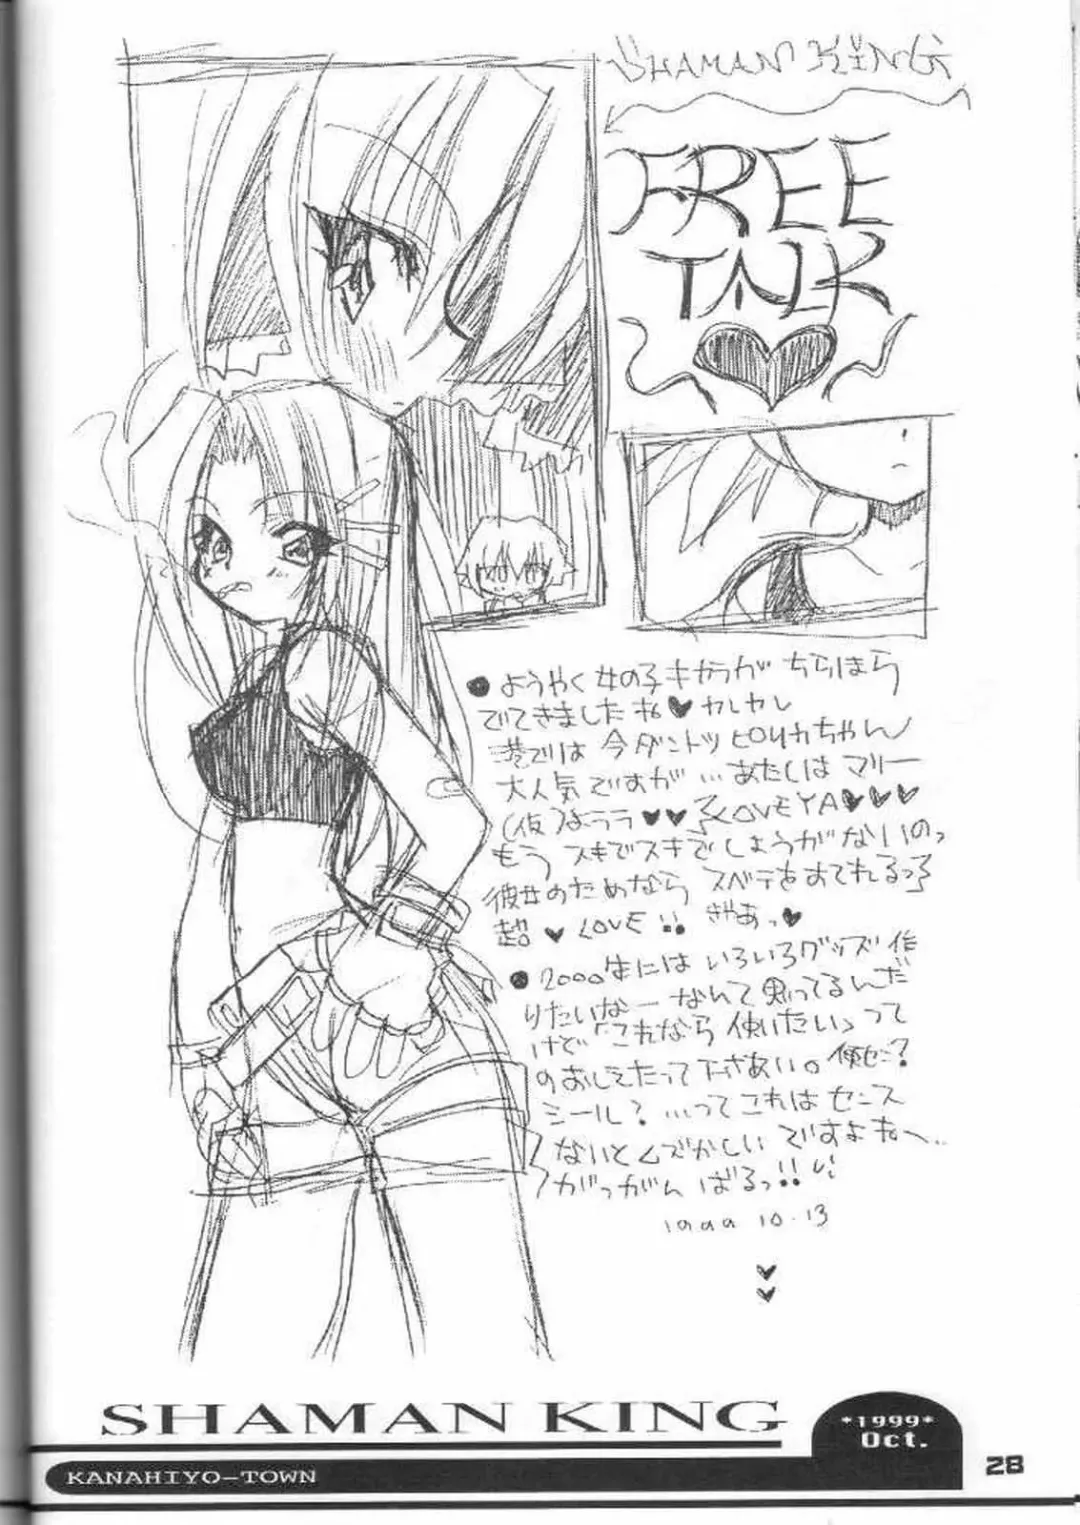 SHAMAN KING
FREE
TALK
●ようやく女の子キャラが ちらほら
でてきましたね♥カレカレ
港では 今ダントツ ピリカちゃん
大人気ですが…あたしは マリー
(仮)よララ♥♥ LOVEYA♥♥♥
もう スキでスキで しょうがないのっ
彼女のためなら スベテをすてれるっ
超♥LOVE!! ぎゃあっ♥
●2000年には いろいろグッズ 作
りたいなー なんて 思ってるんだ
けど「これなら 使いたい」って
のおしえたって下さあい。便せン?
シール? …って これは センス
ないとムズかしい ですよねー…
がっがん ばるっ!!
1999 10.13
SHAMAN KING
*1999*
Oct.
KANAHIYO-TOWN
28